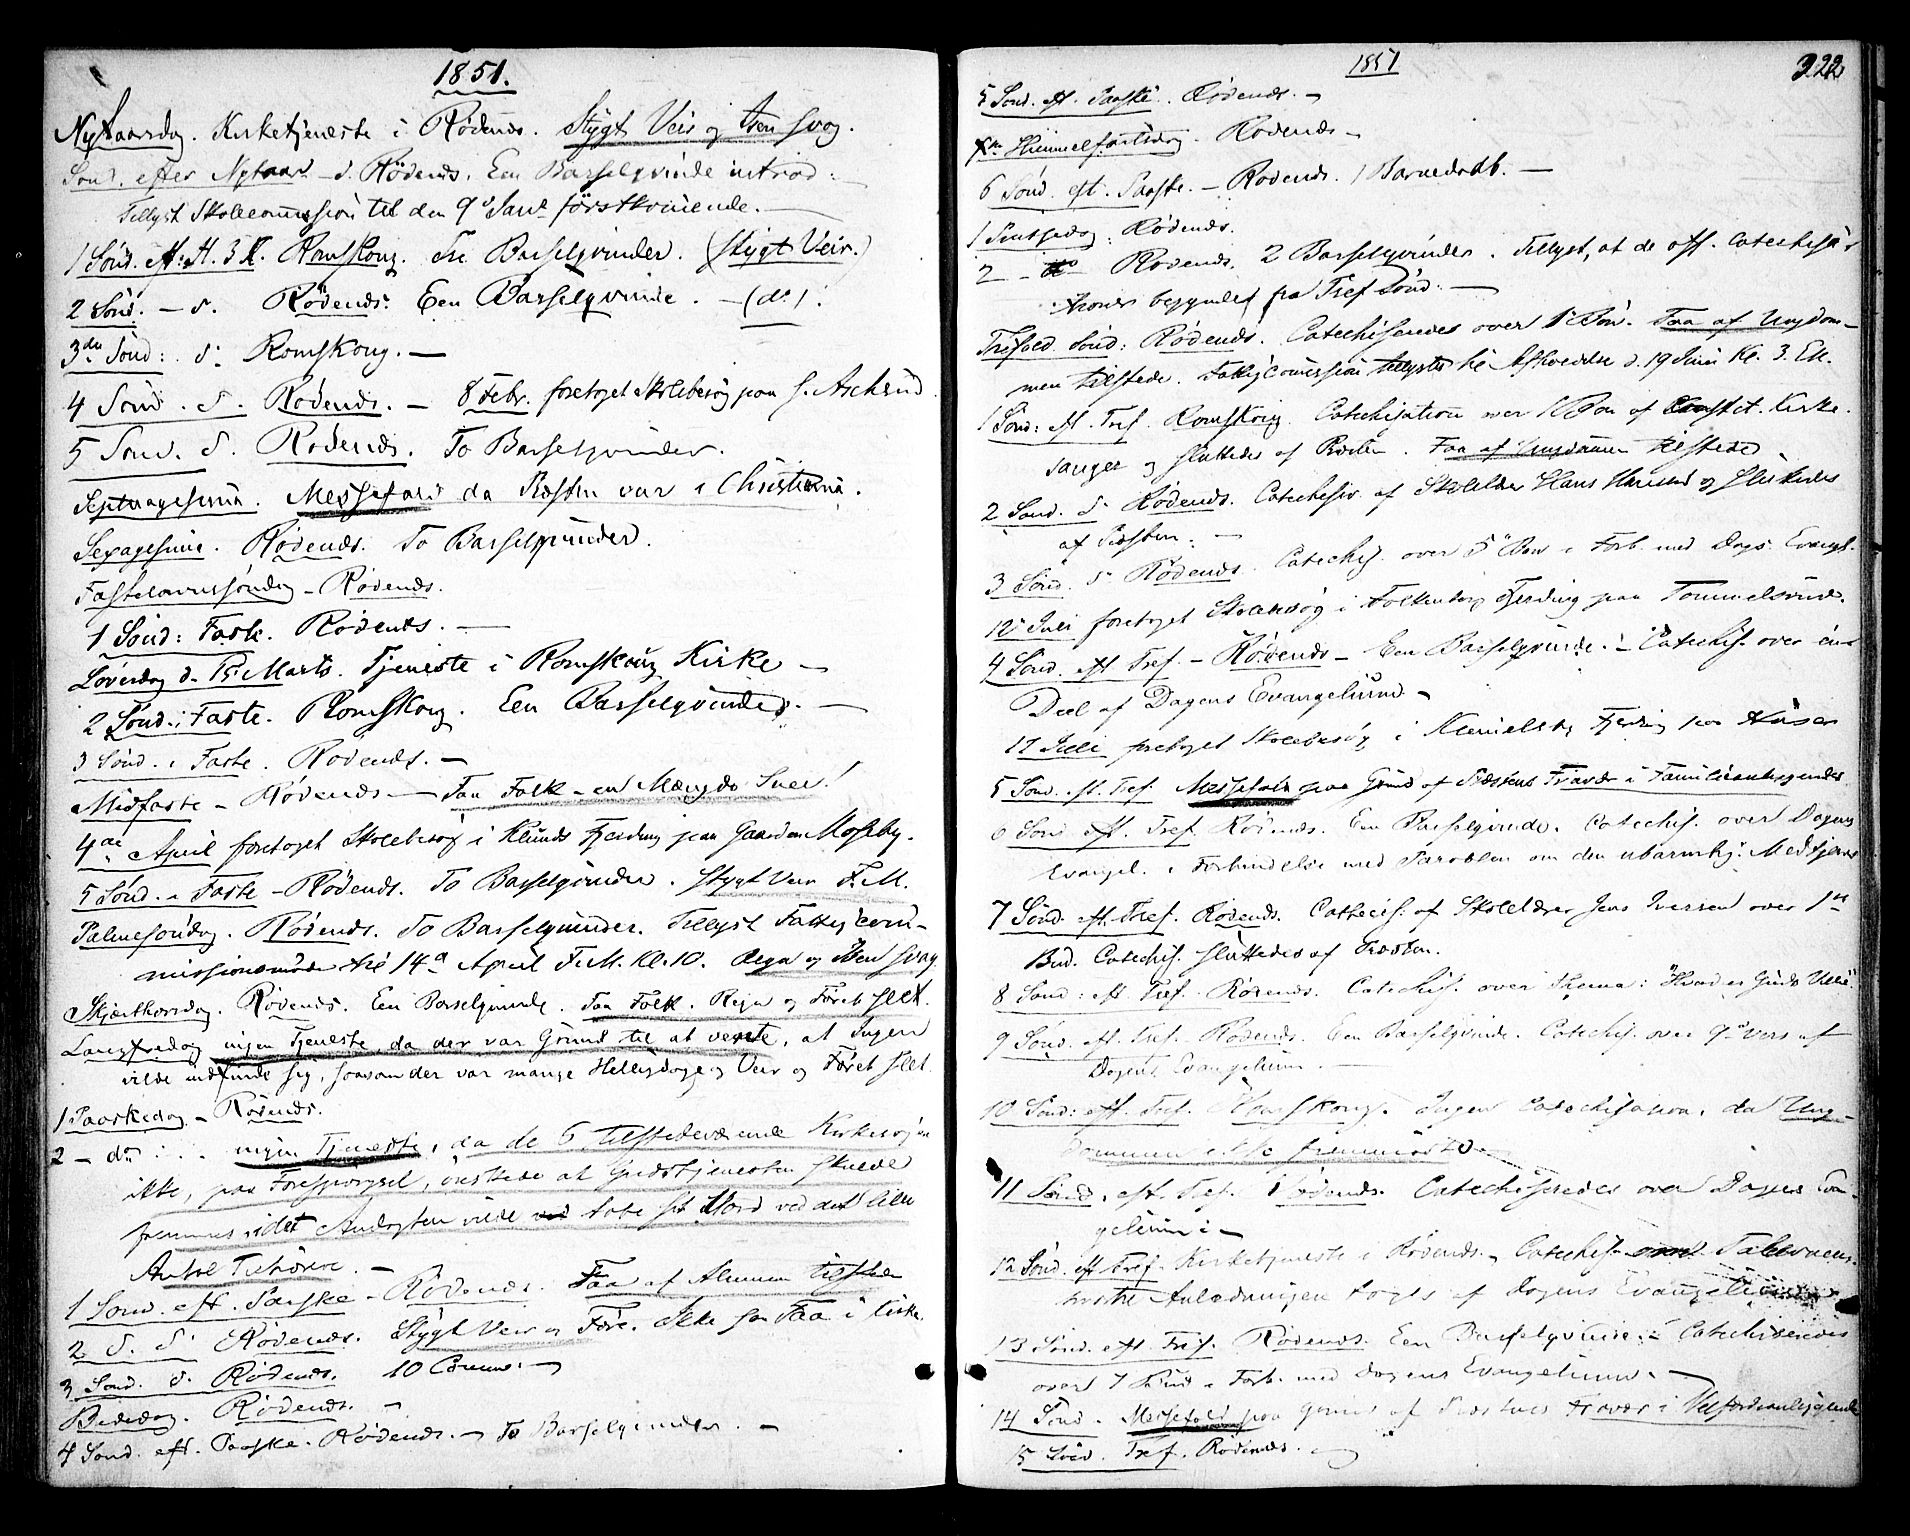 1851.
Nytaarsdag. Kirketjeneste i Rødenæs. Stygt Veir og Isen svag.
Sønd. efter Nytaar - d. Rødenæs. Een Barselqvinde introd:
Tillyst Skolecommission til den 9de Janr førstkommende. —
1 Sønd. eft: H. 3 K. Romskoug. Tre Barselqvinder. (Stygt Veir.)
2 Sønd. — d. Rødenæs. Een Barselqvinde. — (do).
3die Sønd: d. Romskoug. —
4 Sønd. d. Rødenæs. — 8 Febr. foretaget Skolebesøg paa
5 Sønd. d. Rødenæs. To Barselqvinder.
Septuagesima. Messefald da Præsten var i Christiania.
Sexagesima. Rødenæs. To Barselqvinder.
Fastelavnssøndag - Rødenæs.
1 Sønd: Faste. Rødenæs. —
Løverdag d. 15 Marts. Tjeneste i Romskoug Kirke —
2 Sønd. i Faste. Romskoug. Een Barselqvinde. —
3 Sønd. i Faste. Rødenæs. —
Midfaste - Rødenæs — Faa Folk - en Mængde Snee!
4de April foretaget Skolebesøg i Klunds Fjerding paa Gaarden Mosby.
5 Sønd. i Faste - Rødenæs. To Barselqvinder. Stygt Veir F.M.
Palmesøndag. Rødenæs. To Barselqvinder. Tillyst Fattigcom-
missionsmøde til 14de April F.M. Kl. 10. Regn og Isen svag.
Skjærthorsdag. Rødenæs. Een Barselqvinde. Faa Folk. Regn og Føret slet.
Langfredag ingen Tjeneste, da der var Grund til at vente, at Ingen
vilde indfinde sig, saasom der var mange Helligdage og Veir og Føret slet.
1 Paaskedag - Rødenæs.
2 — do . . . ingen Tjeneste, da de 6 tilstedeværende Kirkesøgende
ikke, paa Forespørgsel, ønskede at Gudstjenesten skulde
fremmes, idet Andagten vilde tabe sit Værd ved det lille
Antal Tilhørere. —
1 Sønd. eft. Paaske - Rødenæs. Faa af Almuen tilstede
2 d. d. Rødenæs. Stygt Veir og Føre. Ikke saa Faa i Kirke.
3 Sønd. d. Rødenæs. 10 Commun. —
Bededag. Rødenæs. —
4 Sønd. eft. Paaske. Rødenæs. — To Barselqvinder. —
1851
322
5 Sønd. eft. Paaske. Rødenæs. —
Himmelfartsdag. Rødenæs —
6 Sønd. eft. Paaske. — Rødenæs. 1 Barnedaab. —
1 Pintsedag: Rødenæs.
2 — do Rødenæs. 2 Barselqvinder. Tillyst, at de off. Catechisa-
tioner begyndes fra Tref Sønd. —
Trefold. Sønd: Rødenæs. Catechiseredes over 1ste Bøn. Faa af Ungdom-
men tilstede. Fattigcomission tillystes til Afholdelse d. 19 Juni Kl. 3. Em.
1 Sønd: eft. Tref. Romskoug. Catechisation over 1 Bøn af Kirke-
sanger og sluttedes af Præsten. Faa af Ungdommen tilstede.
2 Sønd. d. Rødenæs. Catechiser. af Skolelærer Hans og sluttedes
af Præsten. —
3 Sønd. d. Rødenæs. Catechis. over 5te Bøn i Forb. med Dags Evangel.
12te Juli foretaget Skolebesøg i Fjerding paa Tommelsrud.
4 Sønd. eft Tref. - Rødenæs - Een Barselqvinde. — Catechis. over en
Deel af Dagens Evangelium. —
17 Juli foretaget Skolebesøg i Fjerding paa
5 Sønd. eft. Tref. Messefald paa Grund af Præstens Fravær i Familieanliggender.
6 Sønd eft. Tref. Rødenæs. Een Barselqvinde. Catechis. over Dagens
Evangel. i Forbindelse med Parablen om den ubarmhj. Medtjener
7 Sønd. eft. Tref. Rødenæs. Catechis: af Skolelærer Jens Iversen over 1ste
Bud. Catechis. sluttedes af Præsten.
8 Sønd: eft Tref. Rødenæs. Catechis. over Thema: "Hvad er Guds Villie".
9 Sønd. eft. Tref. Rødenæs. Een Barselqvinde. Catechis. over 9de Vers af
Dagens Evangelium. —
10 Sønd: eft. Tref. Romskoug. Ingen Catechisation, da Ung-
dommen ikke fremmødte.
11 Sønd. eft. Tref. Rødenæs. Catechiseredes over Dagens Evan-
gelium. —
12 Sønd. eft Tref. Kirketjeneste i Rødenæs. Catechis.
Anledningen toges af Dagens Evangelium
13 Sønd. eft. Tref. Rødenæs. Een Barselqvinde. — Catechiseredes
over 7 Bud i Forb. med Dagens Evangelium. —
14 Sønd. Messefald paa Grund af Præstens Fravær i
15 Sønd. Tref. Rødenæs. —